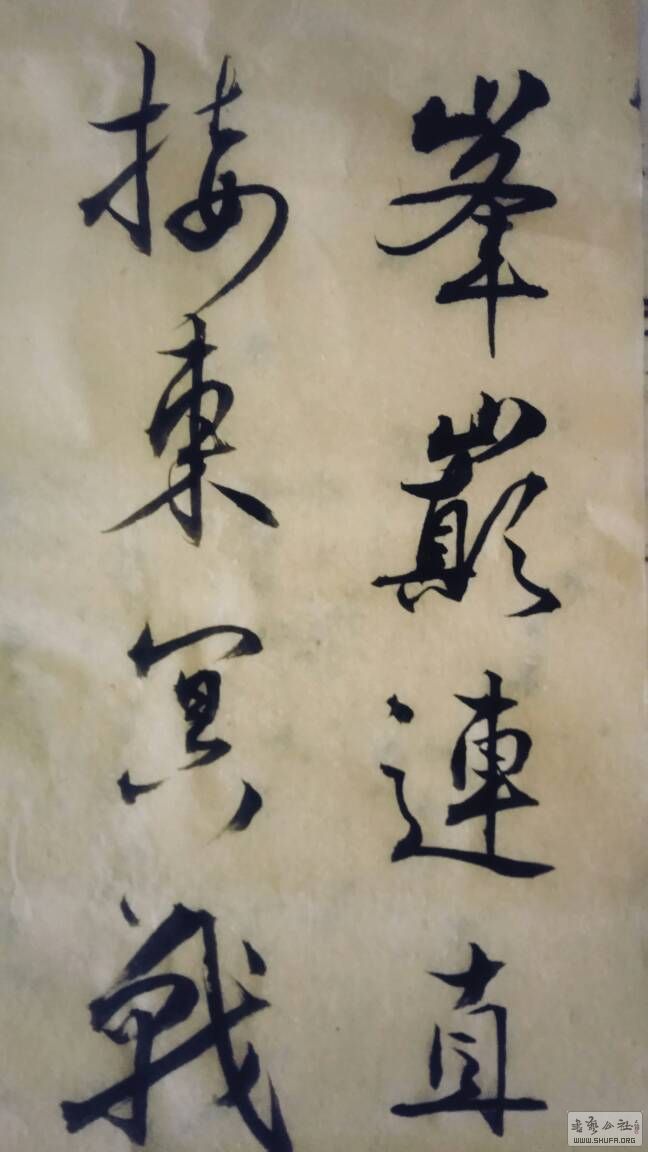 峯巔連直
接東冥戰
書藝公社
WWW.SHUFA.ORG